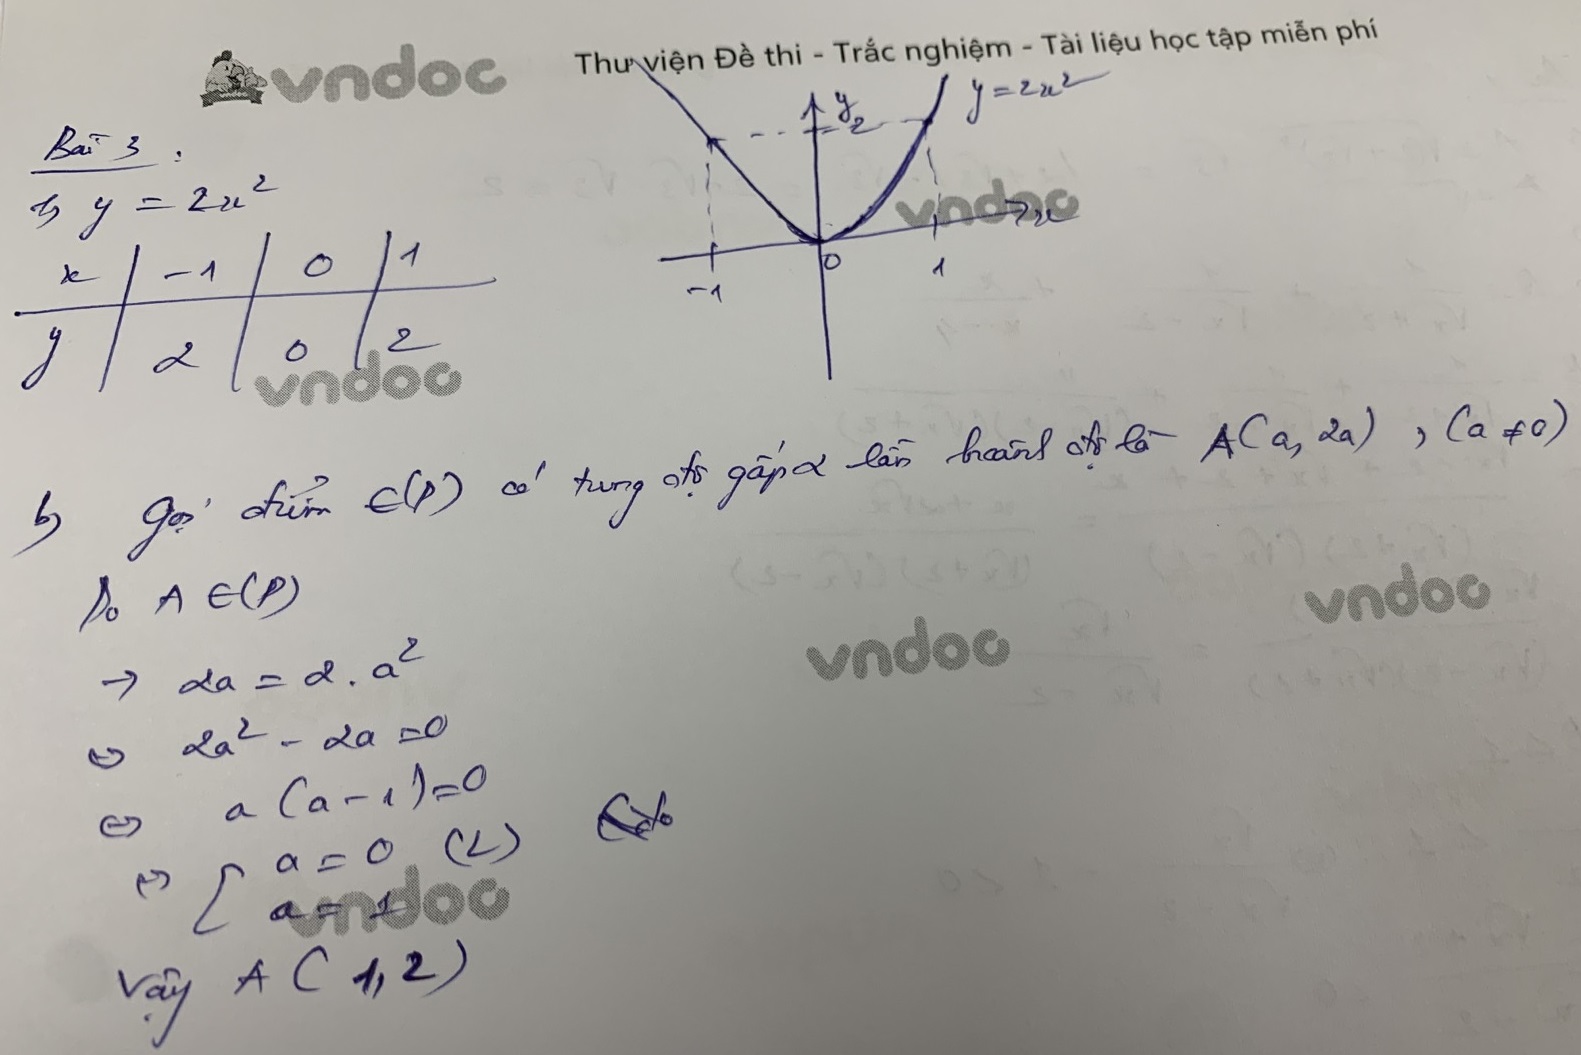 vndoc
Thư viện Đề thi - Trắc nghiệm - Tài liệu học tập miễn phí
Bài 3 :
y = 2x²
x | -1 | 0 | 1
y | 2 | 0 | 2
y
2
y=2x²
vndoc
x
-1
0
1
vndoc
b) Gọi điểm ∈(P) có tung độ gấp 2 lần hoành độ là A(a, 2a) , (a ≠ 0)
Do A ∈(P)
→ 2a = 2 . a²
⇔ 2a² - 2a = 0
⇔ a (a - 1) = 0
⇔ [ a = 0 (L)
a = 1
vndoc
vndoc
vndoc
Vậy A ( 1, 2)